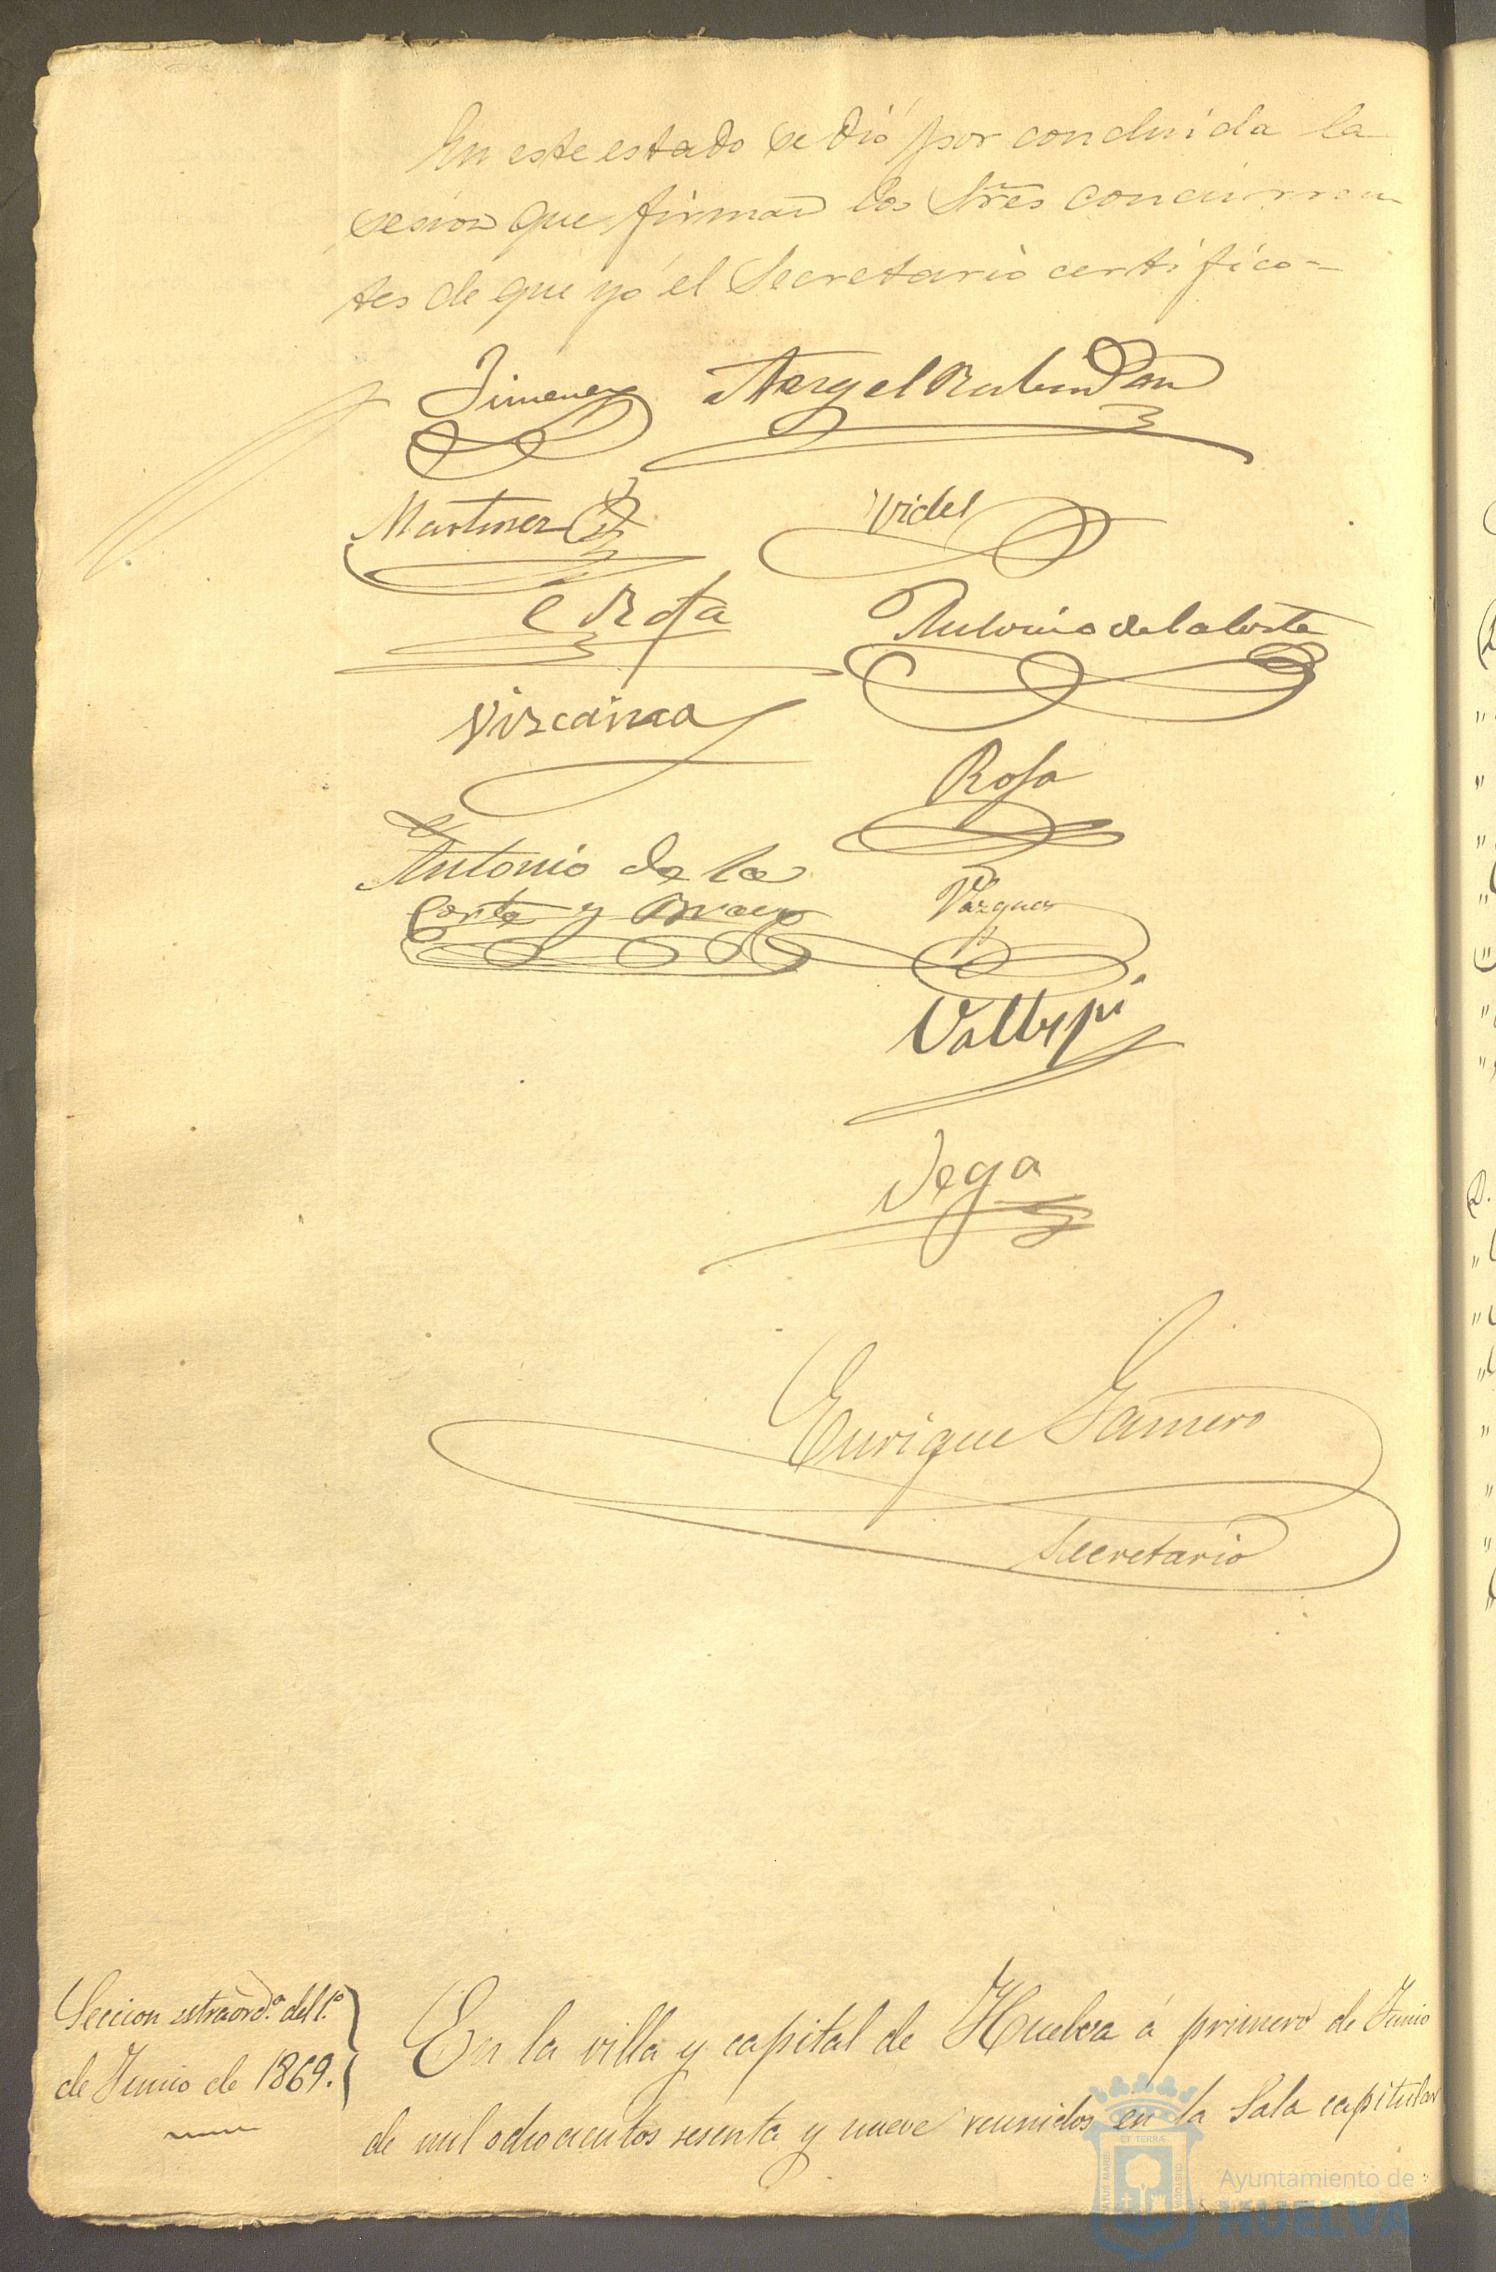 En este estado se dió por concluida la
sesion que firman los Sres concurren
tes de que yo el Secretario certifico=
Jimenez
Angel Rubin
Martinez
Vides
C Rota
Antonio de la Corte
Vizcaina
Rosa
Antonio de la
Corte y Bravo
Vazquez
Vega
Enrique Gamero
Secretario
Seccion estraord.ª del 1.º
de Junio de 1869.
En la villa y capital de Huelva á primero de Junio
de mil ochocientos sesenta y nueve reunidos en la Sala capitular
ET TERRAE
Ayuntamiento de
HUELVA